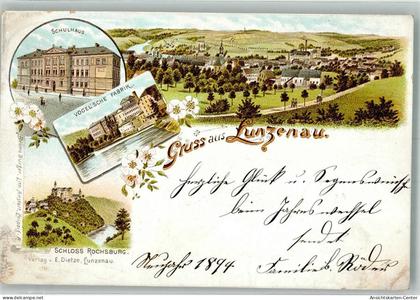 SCHULHAUS.
VOGEL'SCHE FABRIK.
Gruss aus Lunzenau.
Herzliche Glück u. Segenswünsche
beim Jahreswechsel
sendet
Neujahr 1894 Familie B. Röder
SCHLOSS ROCHSBURG.
Verlag v. E. Dietze, Lunzenau.